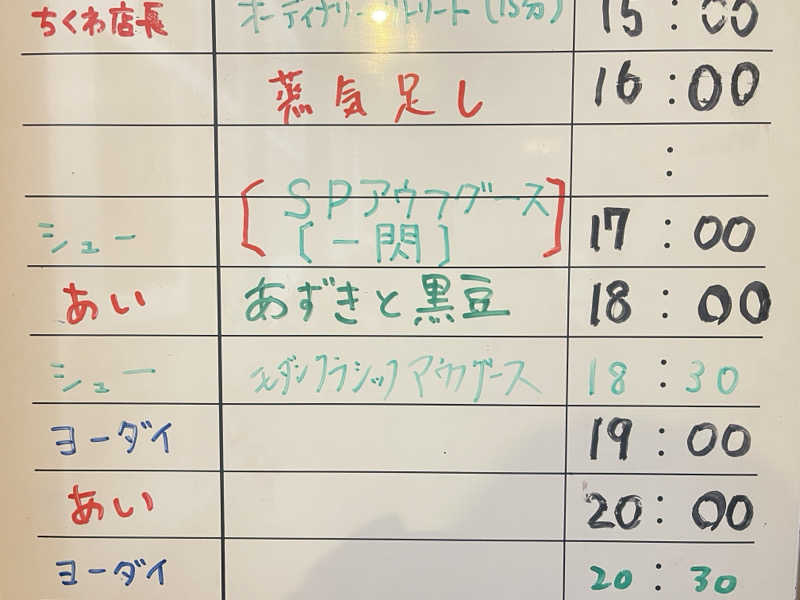 ちくわ店長 オーディナリーリトリート(15分) 15:00
蒸気足し 16:00
:
シュー [SPアウフグース 17:00
[一閃]]
あい あずきと黒豆 18:00
シュー モダンクラシックアウフグース 18:30
ヨーダイ 19:00
あい 20:00
ヨーダイ 20:30